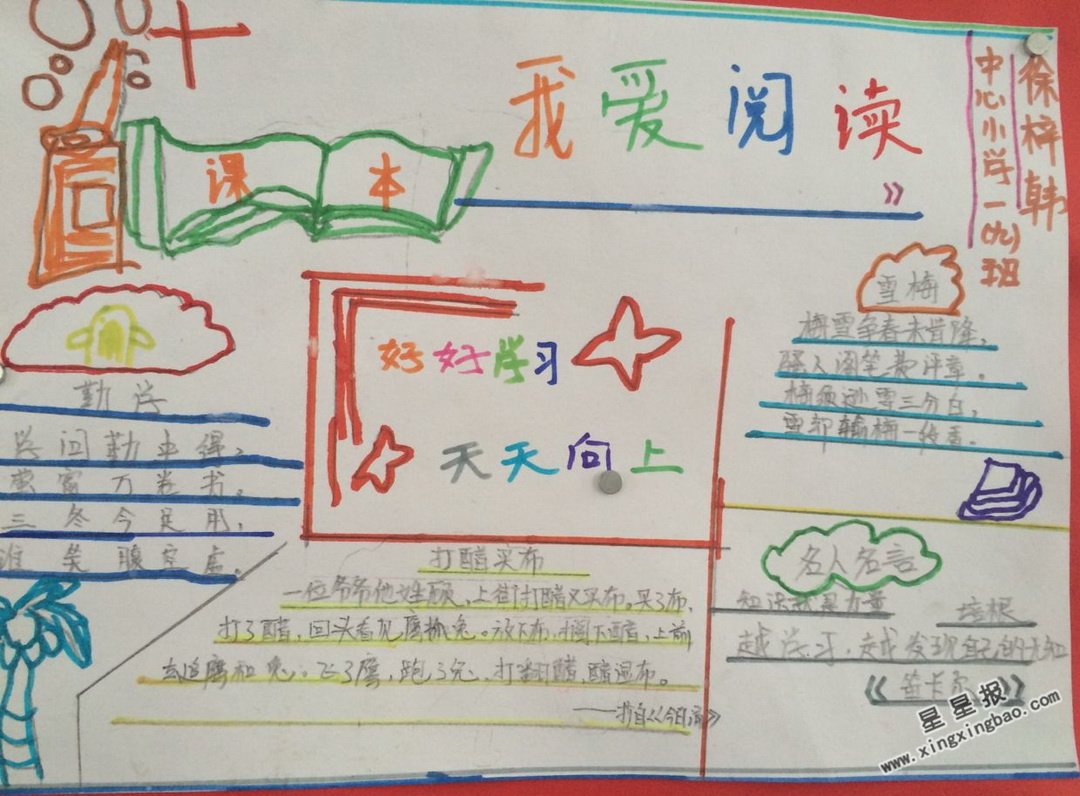 我爱阅读
》
课本
中心小学一(九)班
徐梓韩
勤学
学问勤中得,
萤窗万卷书。
三冬今足用,
谁笑腹空虚。
好好学习
天天向上
雪梅
梅雪争春未肯降,
骚人阁笔费评章。
梅须逊雪三分白,
雪却输梅一段香。
打醋买布
一位爷爷他姓顾,上街打醋又买布。买了布,
打了醋,回头看见鹰抓兔。放下布,搁下醋,上前
去追鹰和兔,飞了鹰,跑了兔,打翻醋,醋湿布。
——摘自《今日》
名人名言
知识就是力量
培根
越学习,越发现自己的无知
《笛卡尔》
星星报
www.xingxingbao.com